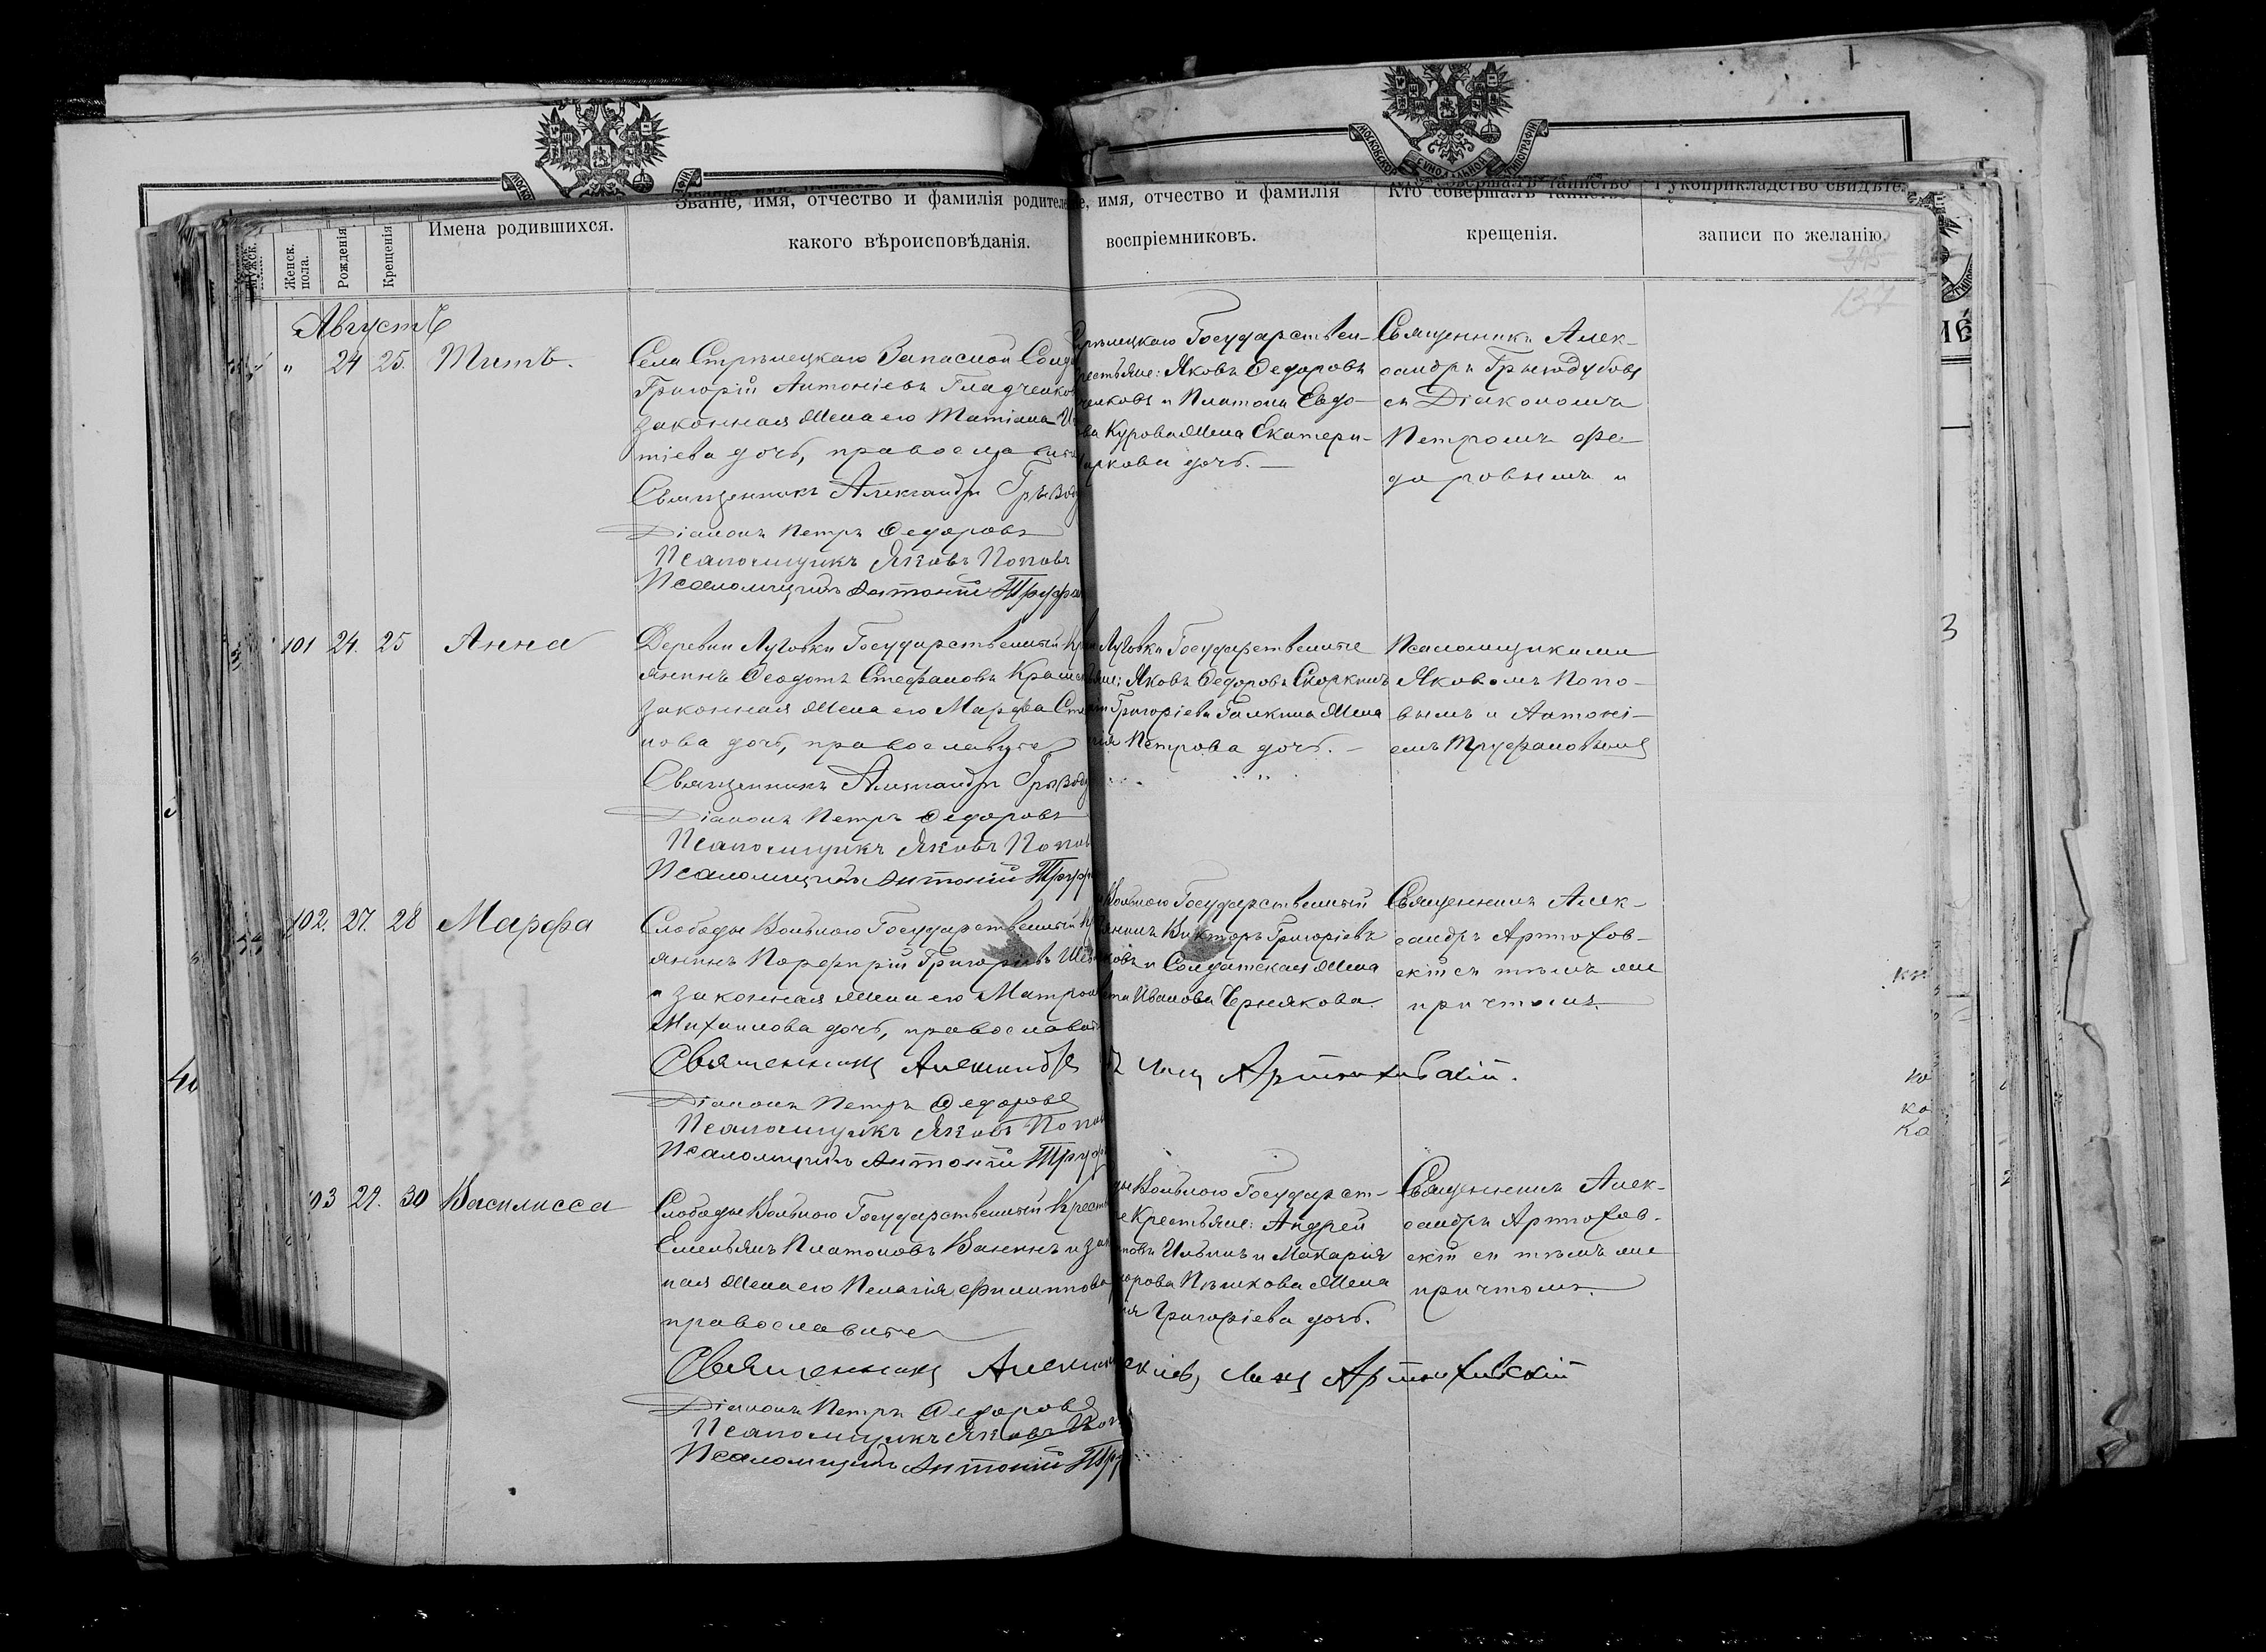 МОСКОВСКОЙ СѴНОДАЛЬНОЙ ТИПОГРАФІИ
Званіе, имя, отчество и фамилія родителе
какого вѣроисповѣданія.
Имена родившихся.
Мужск.
Женск. пола.
Рожденія
Крещенія
е, имя, отчество и фамилія
воспріемниковъ.
Кто совершалъ таинство
крещенія.
Рукоприкладство свидѣте
записи по желанію.
Августъ
" 24 25. Титъ.
Села Стрѣлецкаго Запасной Солд
Григорій Антоніевъ Гладченков
законная жена его Татіана
тіева дочь, православн
Священникъ Александръ Грѣвод
Діаконъ Петръ Ѳедоровъ
Псаломщикъ Яковъ Поповъ
Псаломщикъ Антоній Труфа
рѣлецкаго Государствен-
рестьяне: Яковъ Ѳедоровъ
ченковъ и Платона Евдо-
ова Курова жена Екатери-
аркова дочь. —
Священникъ Алек-
сандръ
съ Діакономъ
Петромъ Фе
доровымъ и
101 24. 25 Анна
Деревни Луговки Государственный Кре
янинъ Ѳеодотъ Стефановъ
законная жена его Марфа Сте
нова дочь, православные
Священникъ Александръ Грѣвод
Діаконъ Петръ Ѳедоровъ
Псаломщикъ Яковъ Попов
Псаломщикъ Антоній Труф
Луговки Государственные
яне: Яковъ Ѳедоровъ Скоркинъ
Григоріева Галкина жена
рія Петрова дочь. —
Псаломщиками
Яковомъ Попо-
вымъ и Антоні-
емъ Труфановымъ
102. 27. 28 Марфа
Слободы Вольною Государственный Кр
янинъ Порфирій Григорьевъ
и законная жена его Матрон
Михаилова дочь, православн
Священникъ Александръ
Діаконъ Петръ Ѳедоровъ
Псаломщикъ Яковъ Попов
Псаломщикъ Антоній Труф
Вольною Государственный
янинъ Викторъ Григоріевъ
ковъ и Солдатская жена
Иванова Чернякова.
Артюховскій.
Священникъ Алек-
сандръ Артюхов-
скій съ тѣмъ же
причтомъ.
103 29. 30 Василисса
Слободы Вольною Государственный Крест
Емельянъ Платоновъ Ванинъ и зак
ная жена его Пелагія Филиппова
православные
Священникъ Алекса
Діаконъ Петръ Ѳедоровъ
Псаломщикъ Яковъ Поп
Псаломщикъ Антоній Тру
ды Вольною Государст-
е Крестьяне: Андрей
новъ Ильинъ и Макарія
орова Пѣшкова жена
ія Григоріева дочь.
Артюховскій
Священникъ Алек-
сандръ Артюхов-
скій съ тѣмъ же
причтомъ.